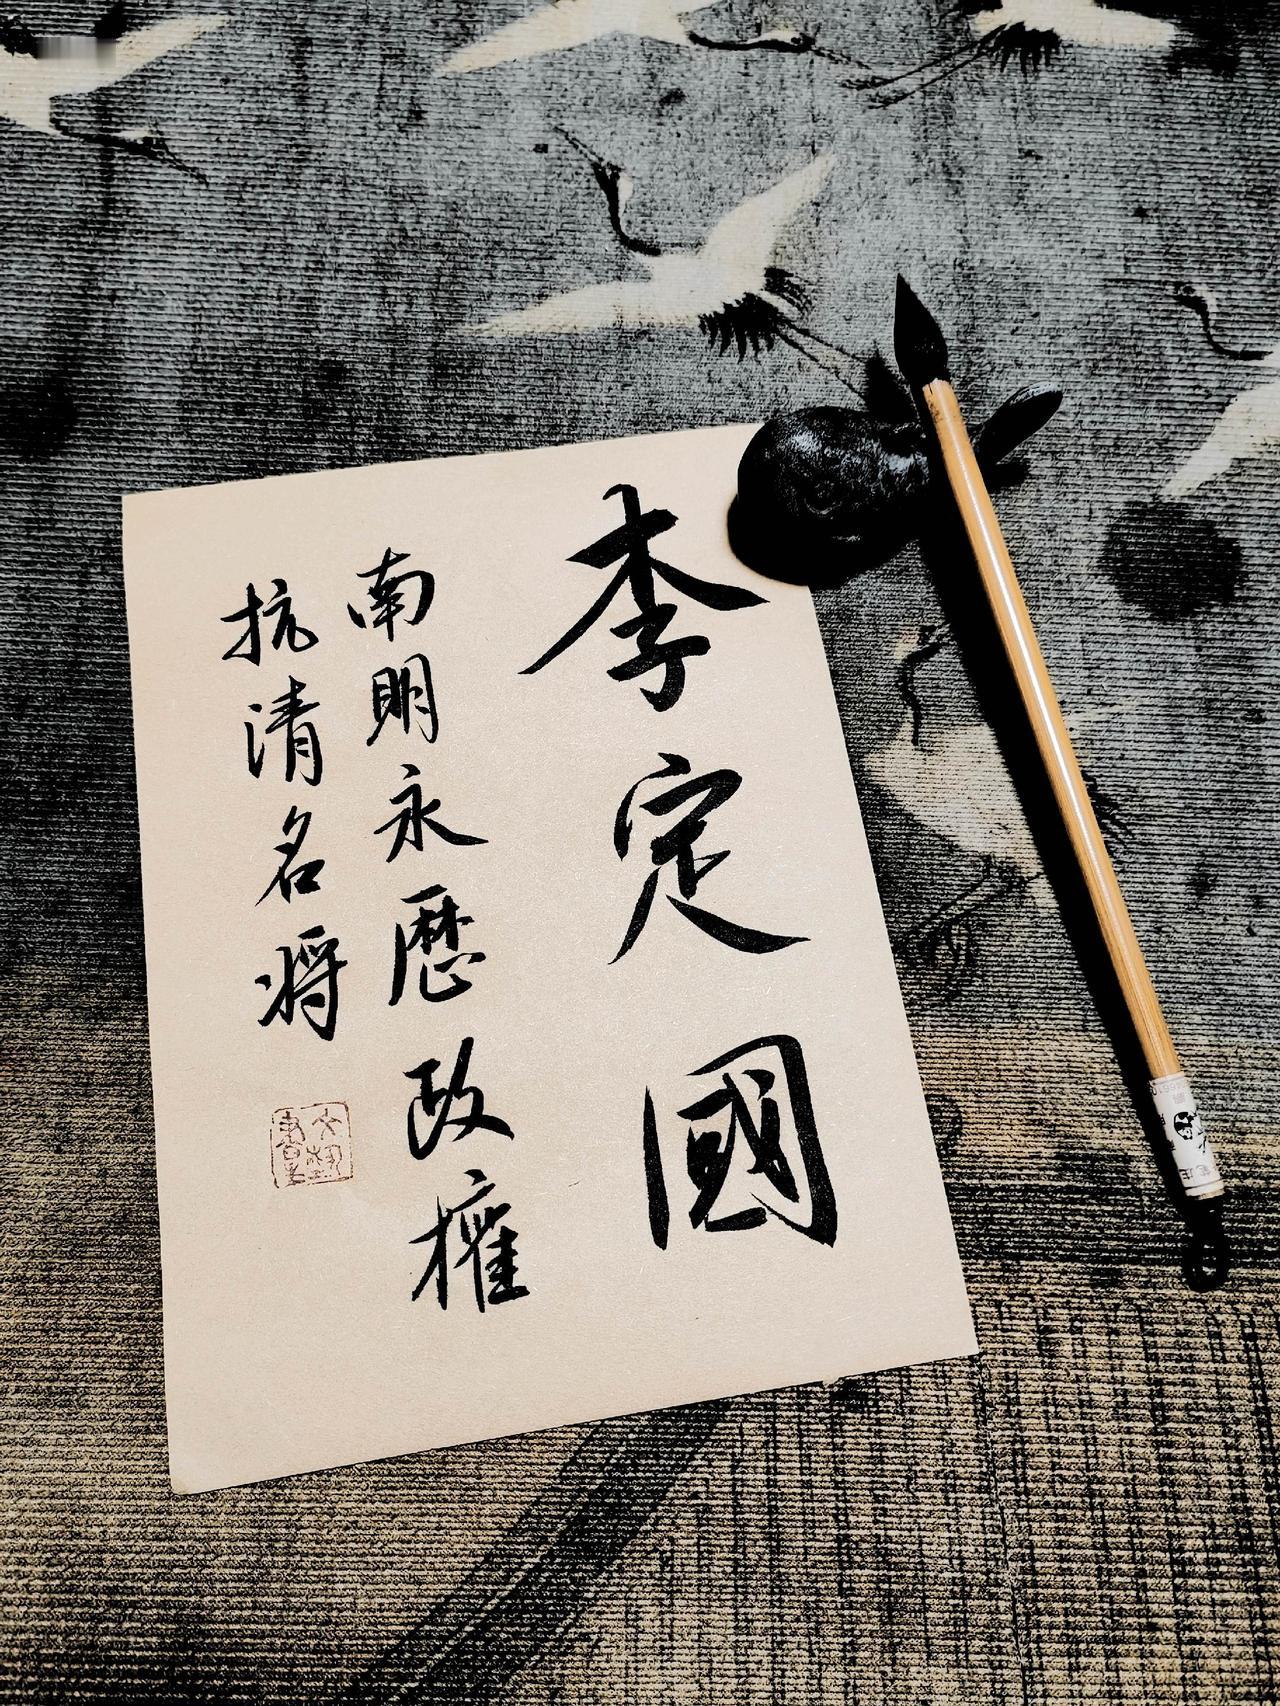 李定國
南明永歷政權
抗清名将